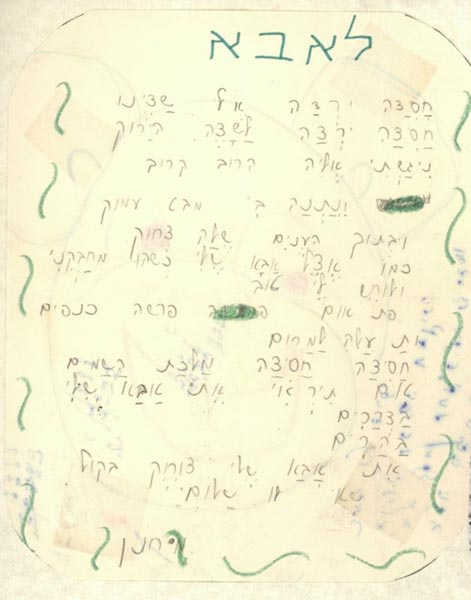 לאבא
חֲסִידָה ירדה אל שדינו
חֲסִידָה ירדה לשדה הירוק
ניגשתי אליה קרוב קרוב
ונתנה בי מבט עמוק
ובתוך העינים שלה צחוק
כמו אצל אבא שלי כשהו מחבקני
ולוחש לי טוב
פת אום פרשה כנפים
ותעלה למרום
חסידה חסידה הולכת השמים
אם תיראי את אבא שלי
בדרכים
בהרים
את אבא שלי צוחק בקול
שאי לו שלום